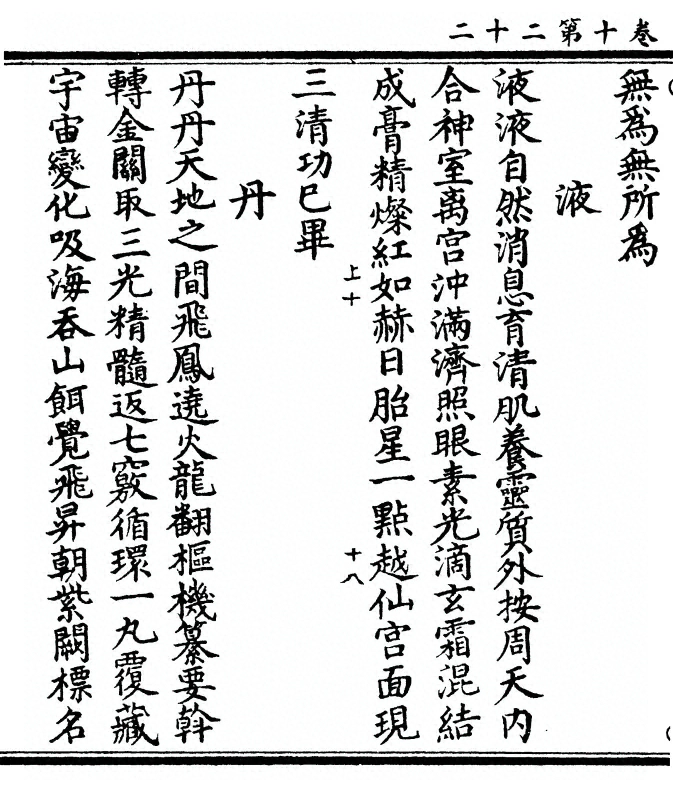 卷十第二十二
無為無所為
液
液液自然消息育清肌養靈質外按周天內
合神室离宮沖滿濟照眼素光滴玄霜混結
成膏精燦紅如赫日胎星一點越仙宮面現
上十
十八
三清功巳畢
丹
丹丹天地之間飛鳳遶火龍翻樞機纂要斡
轉金關取三光精髓返七竅循環一丸覆藏
宇宙變化吸海吞山餌覺飛昇朝紫闕標名